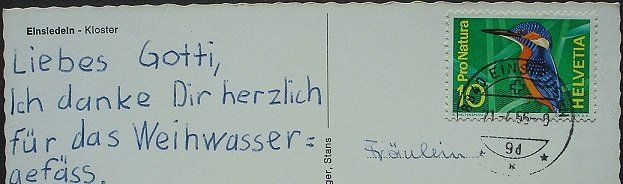 Einsiedeln - Kloster
Liebes Gotti,
Ich danke Dir herzlich
für das Weihwasser=
gefäss.
ger, Stans
Pro Natura
HELVETIA
10
EINS
9d
Fräulein